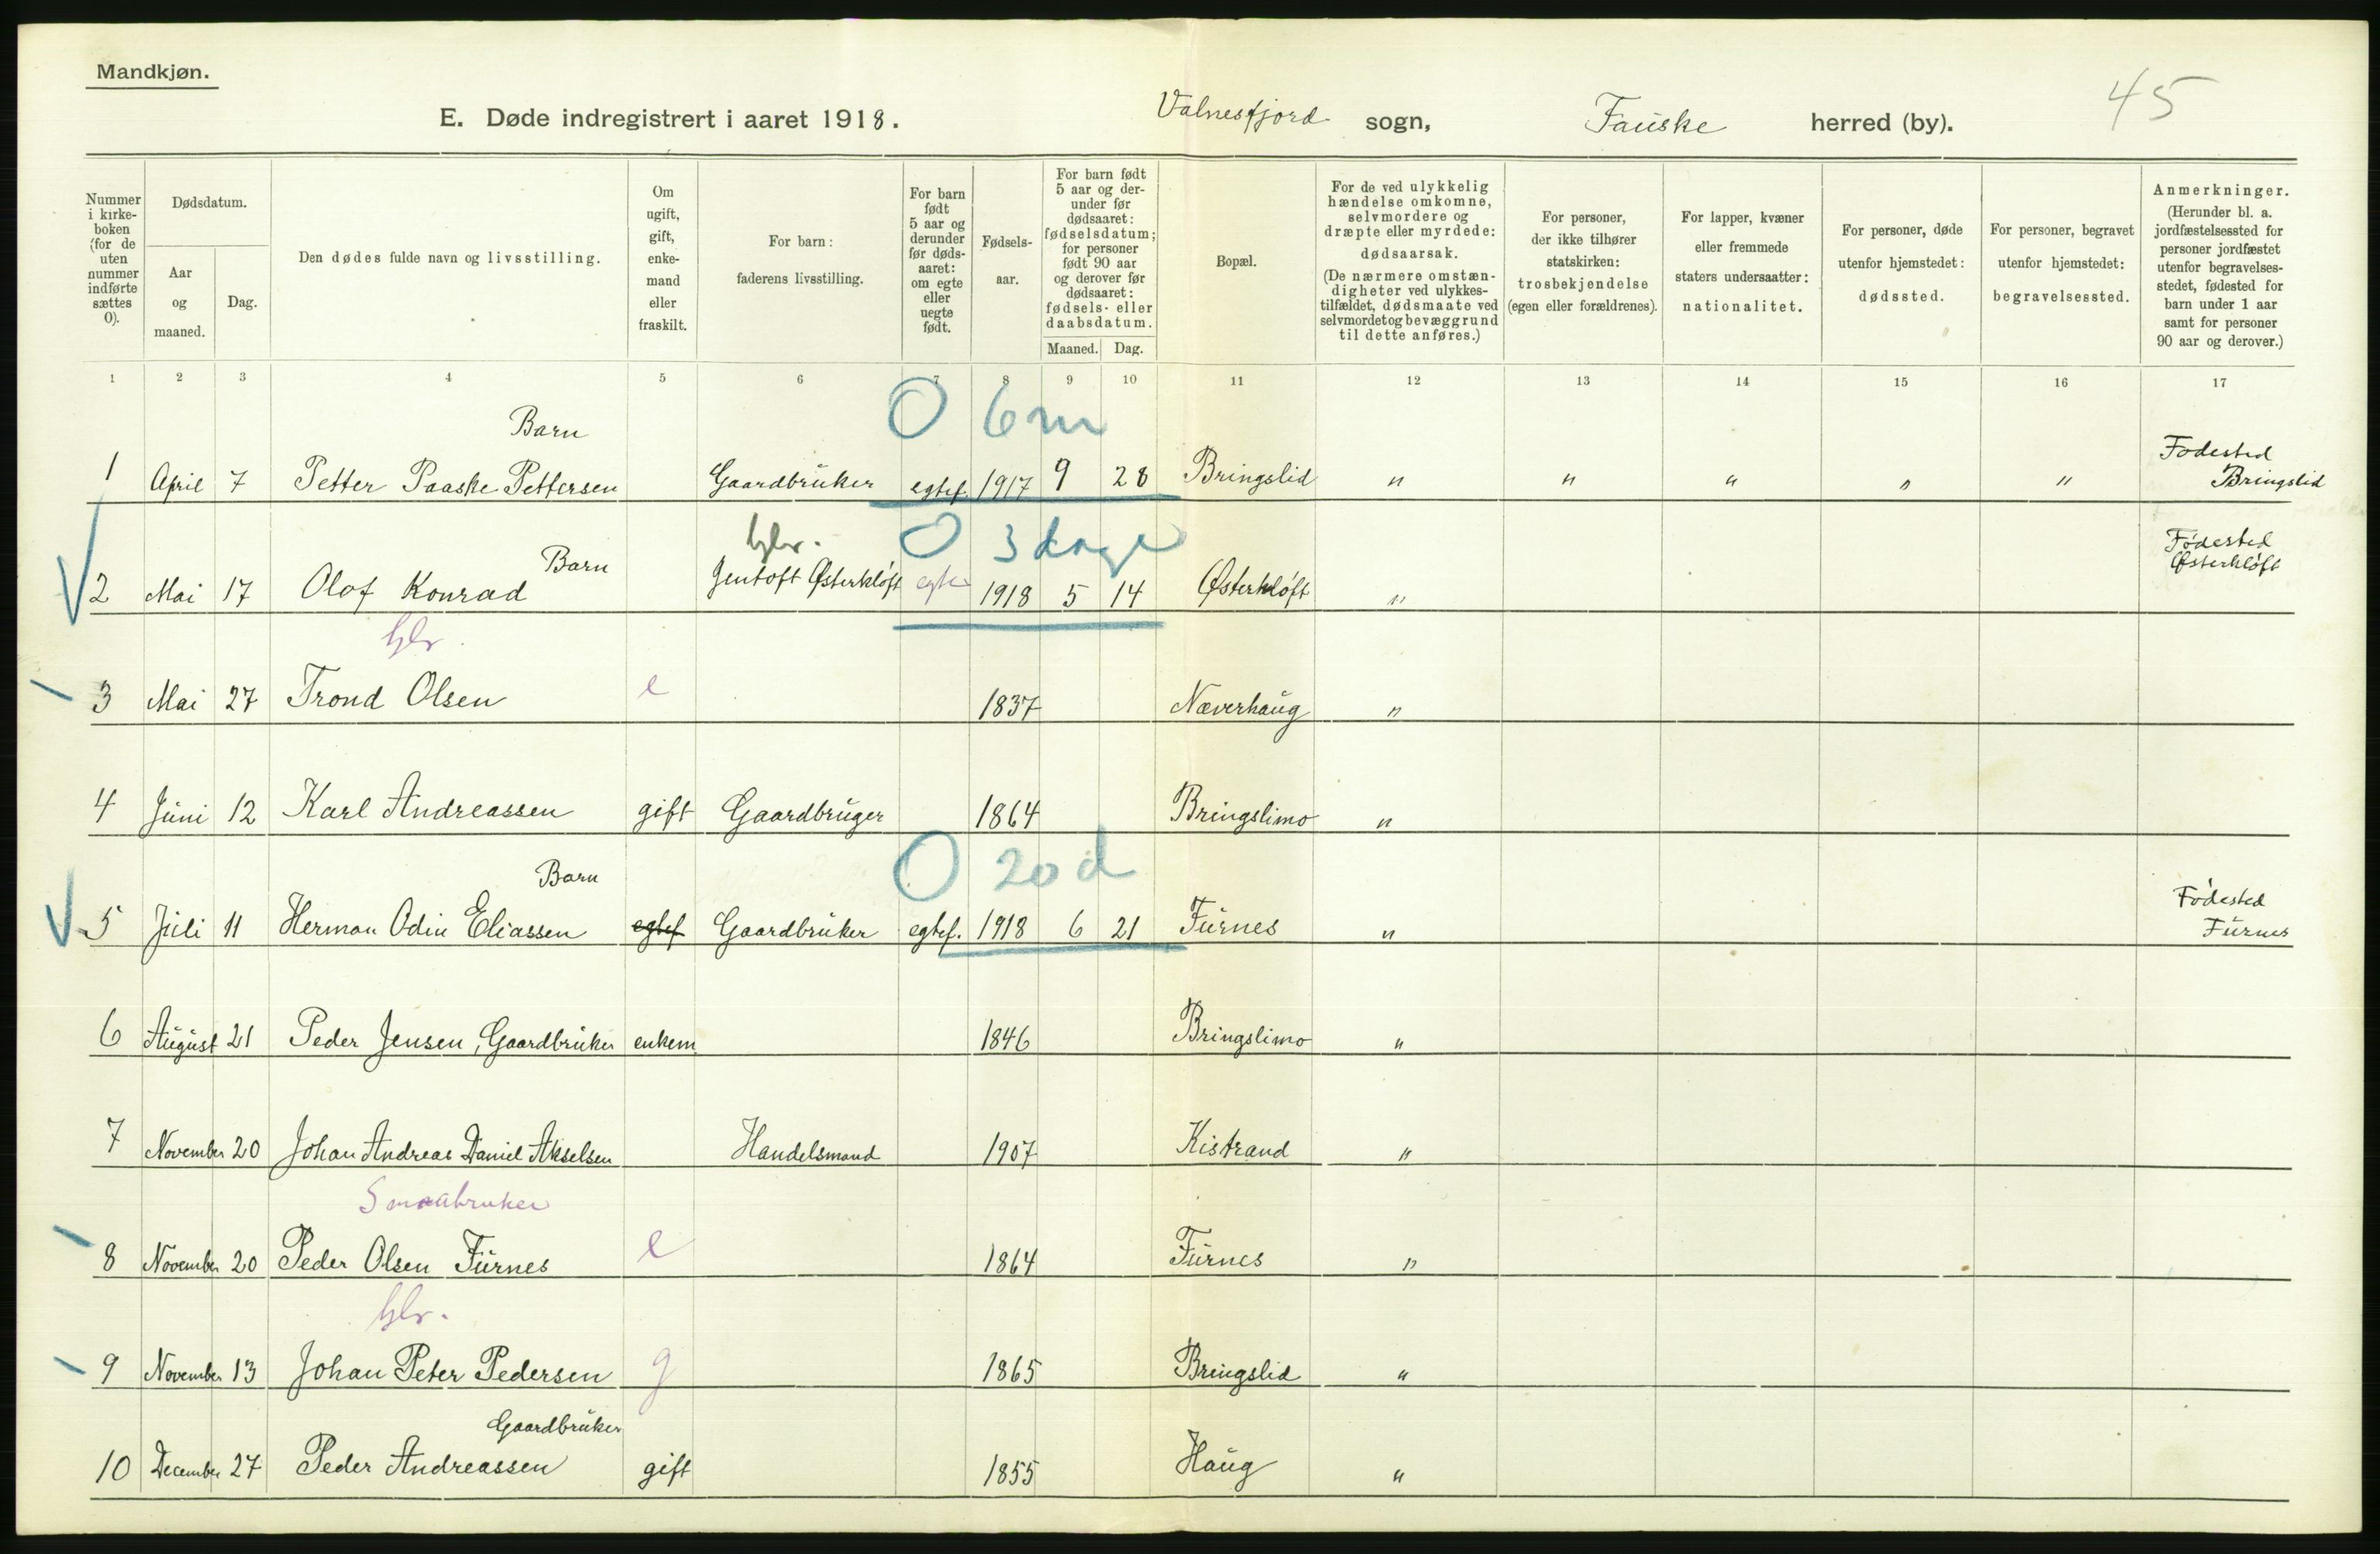 Mandkjøn.
E. Døde indregistrert i aaret 1918. Valnesfjord sogn, Fauske herred (by). 45
Nummer i kirke- boken (for de uten nummer indførte sættes 0).
Dødsdatum.
Aar og maaned.
Dag.
Den dødes fulde navn og livsstilling.
Om ugift, gift, enke- mand eller fraskilt.
For barn: faderens livsstilling.
For barn født 5 aar og derunder før døds- aaret: om egte eller uegte født.
Fødsels- aar.
For barn født 5 aar og der- under før dødsaaret: fødselsdatum; for personer født 90 aar og derover før dødsaaret: fødsels- eller daabsdatum.
Maaned. Dag.
Bopæl.
For de ved ulykkelig hændelse omkomne, selvmordere og dræpte eller myrdede: dødsaarsak. (De nærmere omstæn- digheter ved ulykkes- tilfældet, dødsmaate ved selvmordet og bevæggrund til dette anføres.)
For personer, der ikke tilhører statskirken: trosbekjendelse (egen eller forældrenes).
For lapper, kvæner eller fremmede staters undersaatter: nationalitet.
For personer, døde utenfor hjemstedet: dødssted.
For personer, begravet utenfor hjemstedet: begravelsessted.
Anmerkninger. (Herunder bl. a. jordfæstelsessted for personer jordfæstet utenfor begravelses- stedet, fødested for barn under 1 aar samt for personer 90 aar og derover.)
1 2 3 4 5 6 7 8 9 10 11 12 13 14 15 16 17
Barn 0 6 m Fodested
1 April 7 Petter Paaske Pettersen Gaardbruker egtef. 1917 9 28 Bringslid " " " " " Bringslid
Barn gbr. 0 3 dage Fødested
2 Mai 17 Olof Konrad Jentoft Østerkløft egte 1918 5 14 Østerkløft " Østerkløft
gbr.
3 Mai 27 Trond Olsen e 1837 Næverhaug "
4 Juni 12 Karl Andreassen gift Gaardbruger 1864 Bringslimo "
Barn 0 20 d Fødested
5 Juli 11 Herman Odin Eliassen egtef Gaardbruker egtef. 1918 6 21 Furnes " Furnes
6 August 21 Peder Jensen, Gaardbruker enkem 1846 Bringslimo "
7 November 20 Johan Andreas Daniel Akselsen Handelsmand 1907 Kistrand "
Smaabruker
8 November 20 Peder Olsen Furnes e 1864 Furnes "
gbr.
9 November 13 Johan Peter Pedersen g 1865 Bringslid "
Gaardbruker
10 December 27 Peder Andreassen gift 1855 Haug "